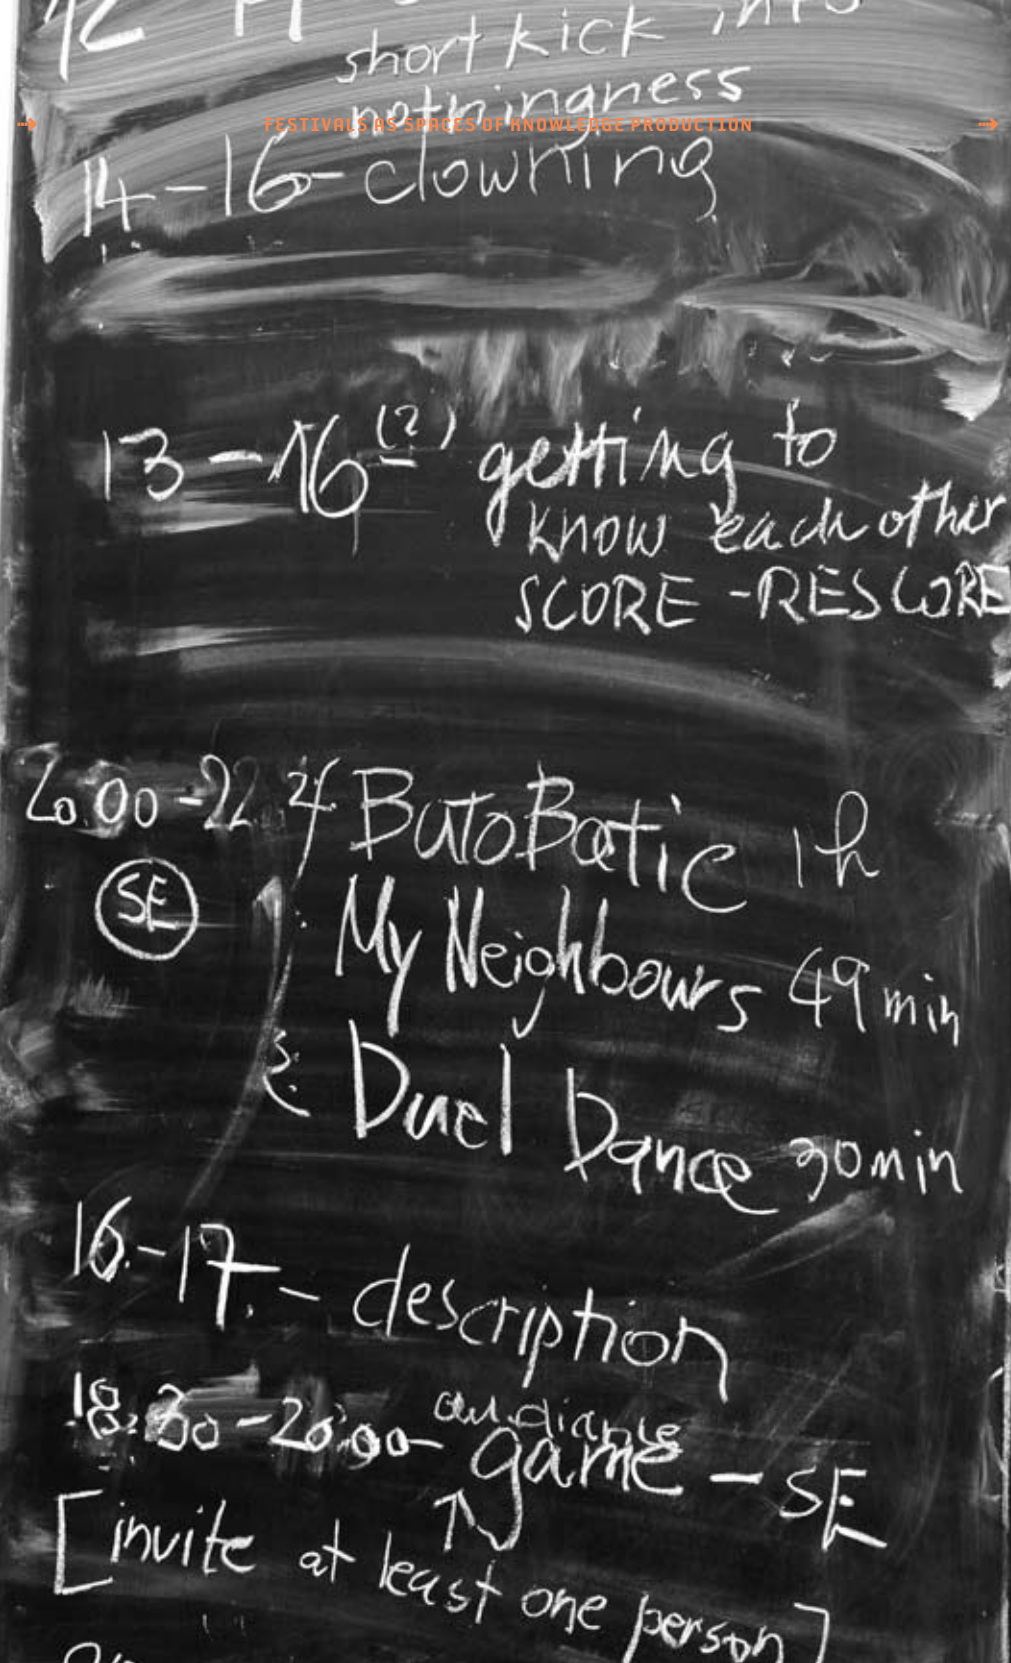 12
short kick into
nothingness
FESTIVALS AS SPACES OF KNOWLEDGE PRODUCTION
14-16-clowning
13-16(?) getting to
know each other
SCORE-RESCORE
20:00-22 ButoBatic 1h
SE
My Neighbours 49 min
Duel Dance 30 min
16.-17.- description
audiance
18:30-20:00- game - SE
[invite at least one person]